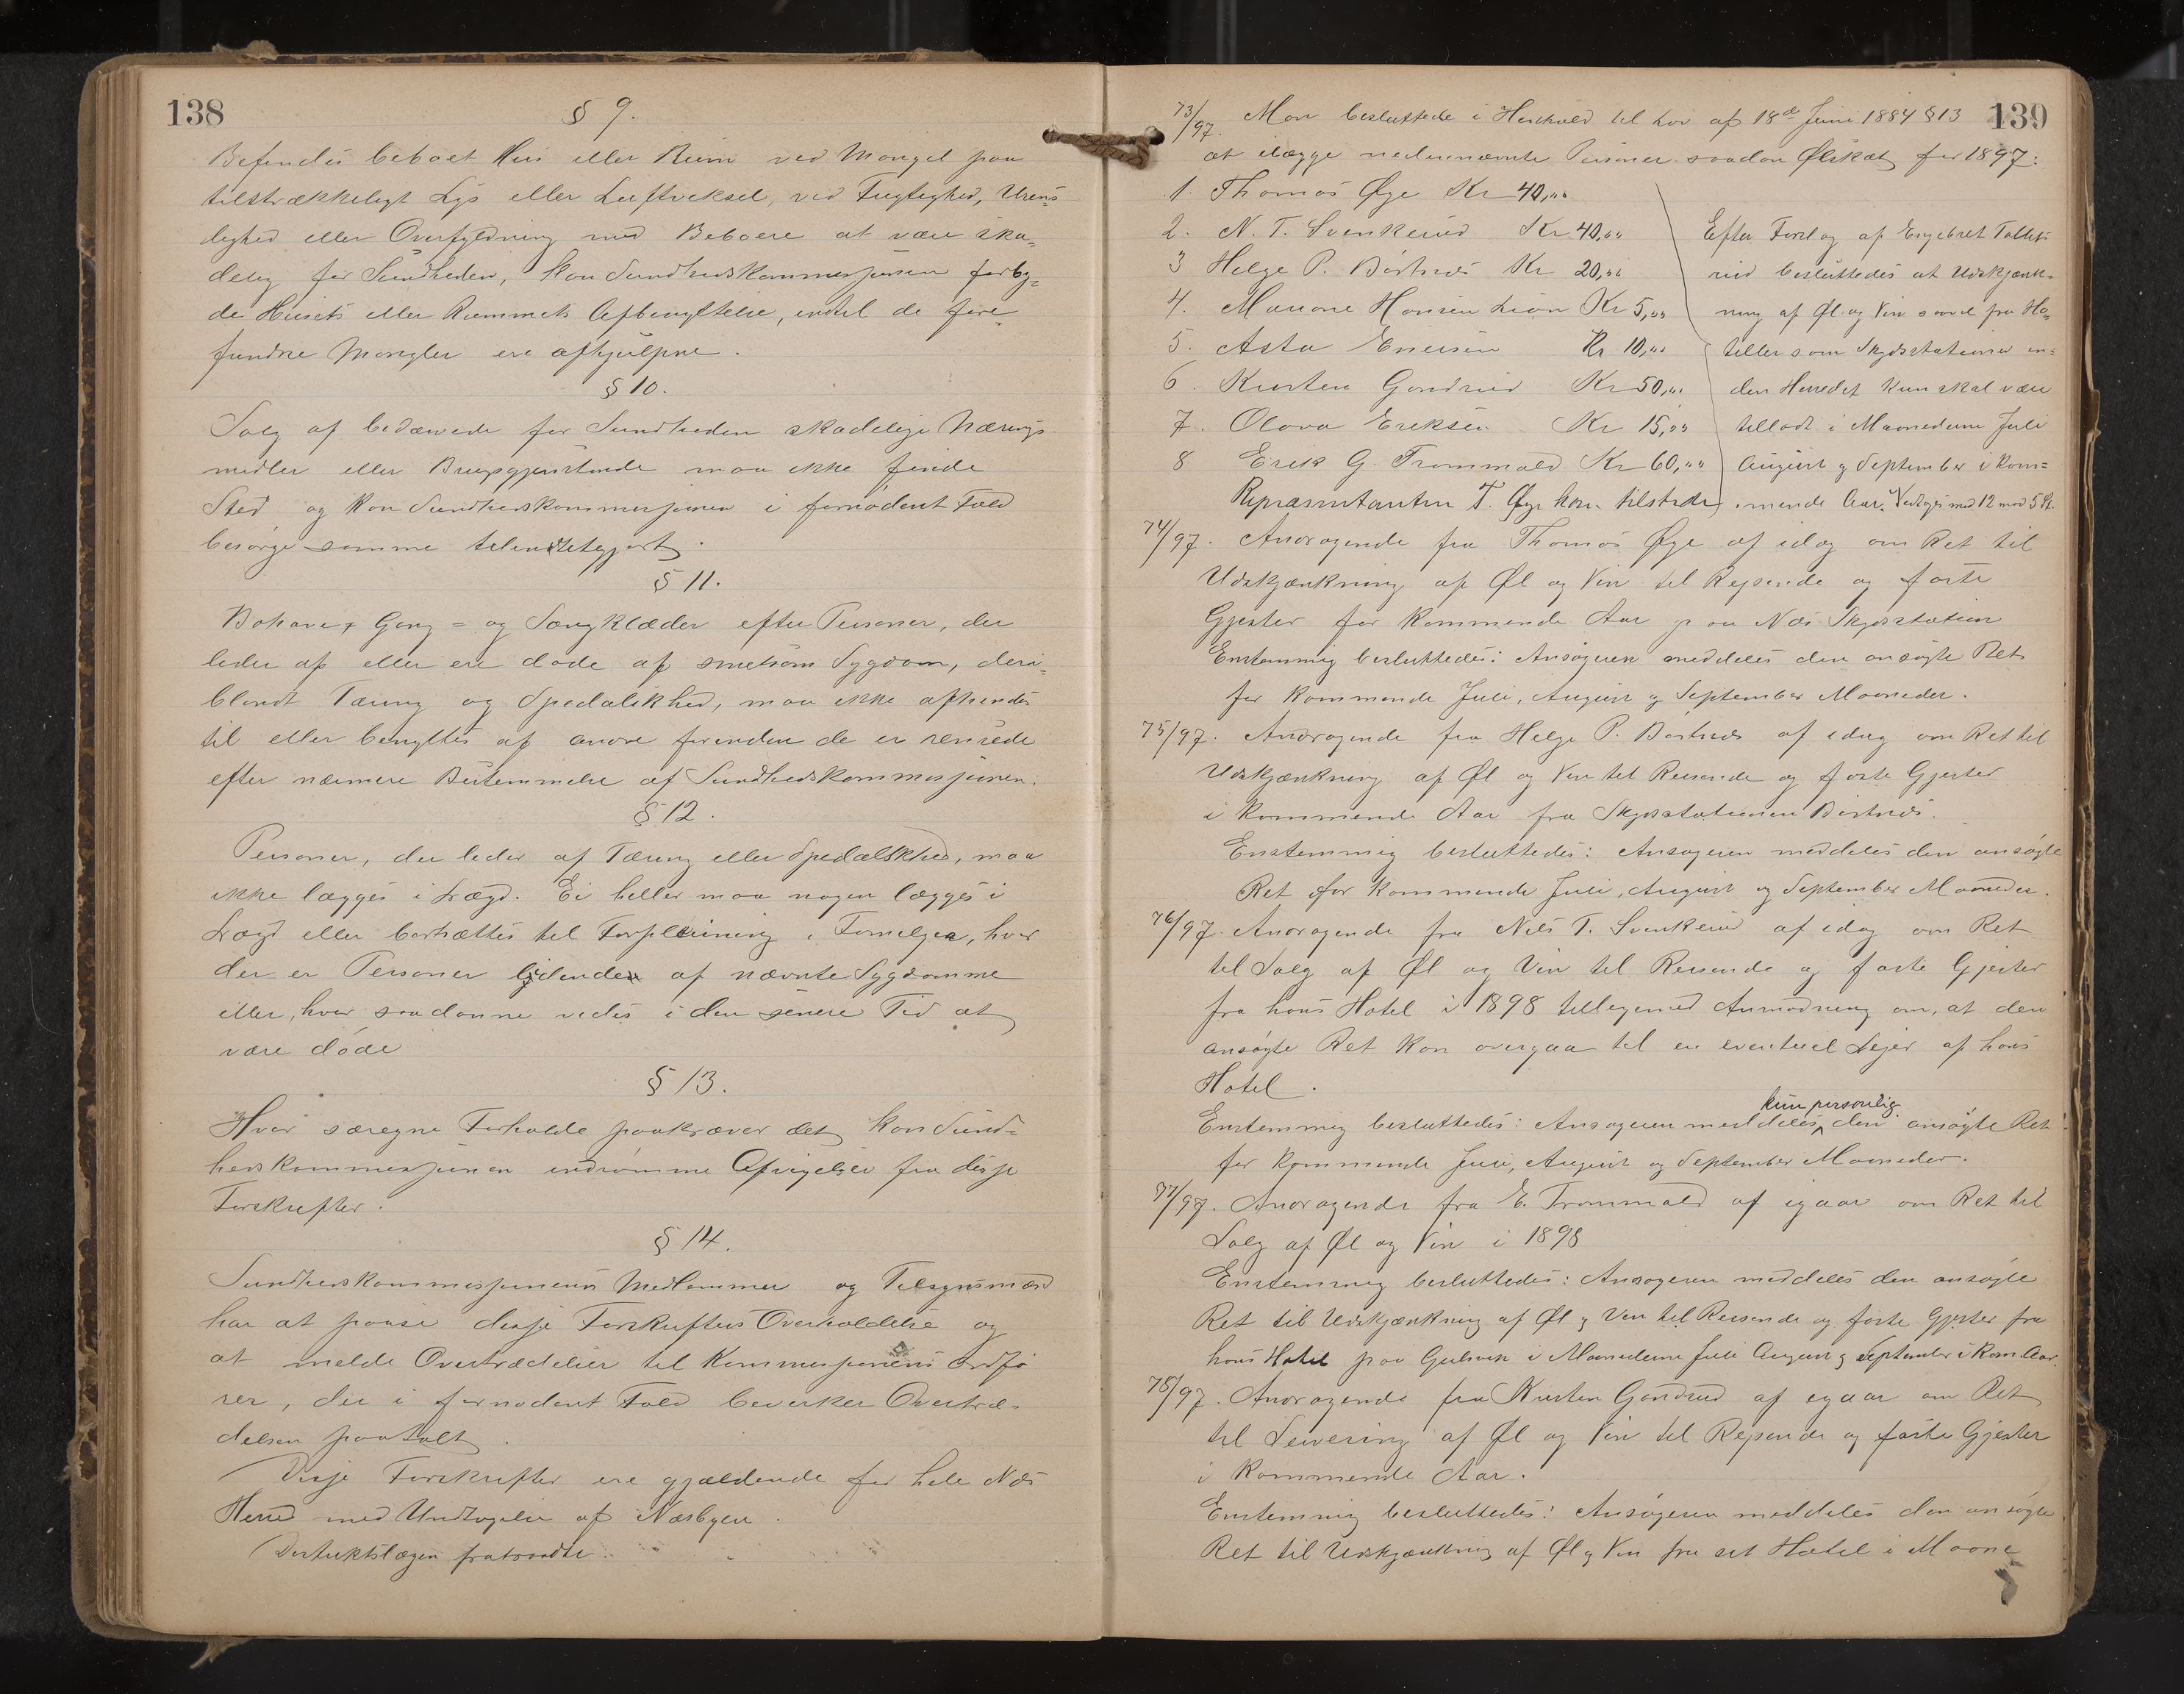 138
§ 9.
Befindes beboet Hus eller Rum ved Mangel paa
tilstrækkeligt Lys eller Luftveksel, ved Fugtighed, Uren=
lighed eller Overfyldning med Beboere at være ska=
delig for Sundheden, kan Sundhedskommisjonen forby=
de Husets eller Rummets Afbenyttelse, indtil de fore=
fundne Mangler ere afhjulpne.
§ 10.
Salg af bedærvede for Sundheden skadelige Nærings
midler eller Brugsgjenstande maa ikke finde
Sted og kan Sundhedskommisjonen i fornødent Fald
besørge samme tilintetgjort.
§ 11.
Bohave, Gang= og Sengklæder efter Personer, der
lider af eller ere døde af smetsom Sygdom, deri=
blandt Tæring og Spedalskhed, maa ikke afhændes
til eller benyttes af andre forinden de er rensede
efter nærmere Bestemmelse af Sundhedskommisjonen.
§ 12.
Personer, der lider af Tæring eller Spedalskhed, maa
ikke lægges i Lægd. Ei heller maa nogen lægges i
Lægd eller bortsættes til Forpleining i Familyer, hvor
der er Personer lidende af nævnte Sygdomme
eller, hvor saadanne vides i den senere Tid at
være døde
§ 13.
Hvor særegne Forholde paakræver det kan Sund=
hedskommisjonen indrømme Afvigelser fra disse
Forskrifter.
§ 14.
Sundhedskommisjonens Medlemmer og Tilsynsmænd
har at paase disse Forskrifters Overholdelse og
at melde Overtrædelser til Kommisjonens Ordfø
rer, der i fornødent Fald bevirker Overtræ=
delsen paatalt.
Disse Forskrifter ere gjældende for hele Næs
Herred med Undtagelse af Næsbyen.
Distriktslægen fratraadte.
139
73/97. Man besluttede i Henhold til Lov af 18de Juni 1884 § 13
at ilægge nedennævnte Personer saadan Ølskat for 1897:
1. Thomas Øye Kr 40,00
2. N. T. Svenkerud Kr 40,00
3 Helge P. Børtnæs Kr 20,00
4. Hansen Kr 5,00
5. Asta Kr 10,00
6. Kirsten Gandrud Kr 50,00
7. Olava Eriksen Kr 15,00
8 Erik G. Trommald Kr 60,00
Repræsentanten T. Øye kom tilstede
Efter Forslag af Engebret
rud besluttedes at Udskjænk=
ning af Øl og Vin saavel fra Ho=
teller som Skydsstationer in=
den Herredet kun skal være
tilladt i Maanederne Juli
August og September i kom=
mende Aar. Vedtoges med 12 mod 5 St.
74/97. Andragende fra Thomas Øye af idag om Ret til
Udskjænkning af Øl og Vin til Rejsende og faste
Gjester for kommende Aar paa Næs Skydsstation
Enstemmig besluttedes: Ansøgeren meddeles den ansøgte Ret
for kommende Juli, August og September Maaneder.
75/97. Andragende fra Helge P. Børtnæs af idag om Ret til
Udskjænkning af Øl og Vin til Reisende og faste Gjester
i kommende Aar fra Skydsstationen Børtnæs.
Enstemmig besluttedes: Ansøgeren meddeles den ansøgte
Ret for kommende Juli, August og September Maaneder.
76/97. Andragende fra Nils T. Svenkerud af idag om Ret
til Salg af Øl og Vin til Reisende og faste Gjester
fra hans Hotel i 1898 tilligemed Anmodning om, at den
ansøgte Ret kan overgaa til en eventuel Lejer af hans
Hotel.
kun personlig
Enstemmig besluttedes: Ansøgeren meddeles den ansøgte Ret
for kommende Juli, August og September Maaneder.
77/97. Andragende fra E. Trommald af igaar om Ret til
Salg af Øl og Vin i 1898
Enstemmig besluttedes: Ansøgeren meddeles den ansøgte
Ret til Udskjænkning af Øl og Vin til Reisende og faste Gjester fra
hans Hotel paa Gulsvik i Maanederne Juli August og September i kom. Aar.
78/97. Andragende fra Kirsten Gandrud af igaar om Ret
til Servering af Øl og Vin til Rejsende og faste Gjester
i kommende Aar.
Enstemmig besluttedes: Ansøgeren meddeles den ansøgte
Ret til Udskjænkning af Øl og Vin fra sit Hotel i Maane